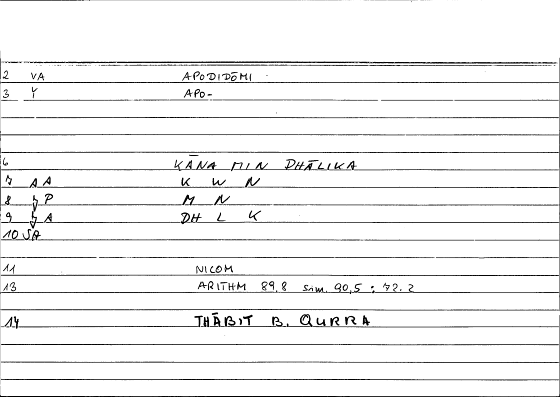 2 VA APODIDŌMI
3 Y APO-
6 KĀNA MIN DHĀLIKA
7 AA K W N
8 P M N
9 A DH L K
10 SA
11 NICOM
13 ARITHM 89,8 sim. 90,5 : 72.2
14 THĀBIT B. QURRA